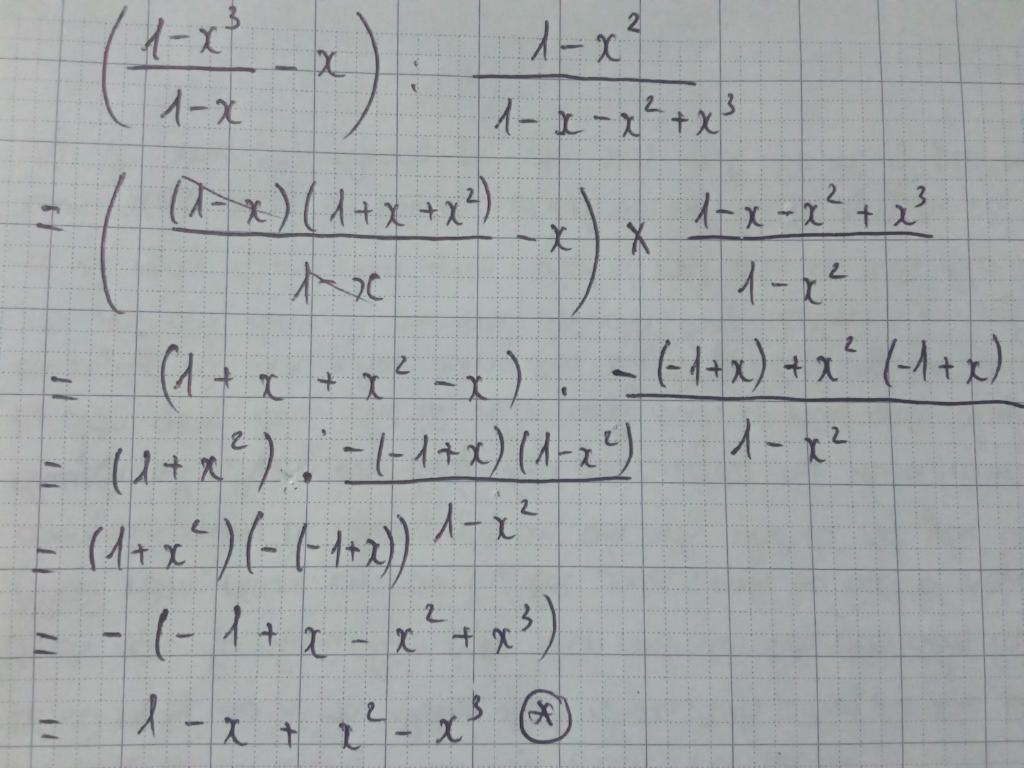 ( (1-x³)/(1-x) - x ) : (1-x²)/(1-x-x²+x³)
= ( (1-x)(1+x+x²)/(1-x) - x ) × (1-x-x²+x³)/(1-x²)
= (1+x+x²-x) . (-(-1+x)+x²(-1+x))/(1-x²)
= (1+x²) . (-(-1+x)(1-x²))/(1-x²)
= (1+x²)(-(-1+x))
= -(-1+x-x²+x³)
= 1-x+x²-x³ ⊛